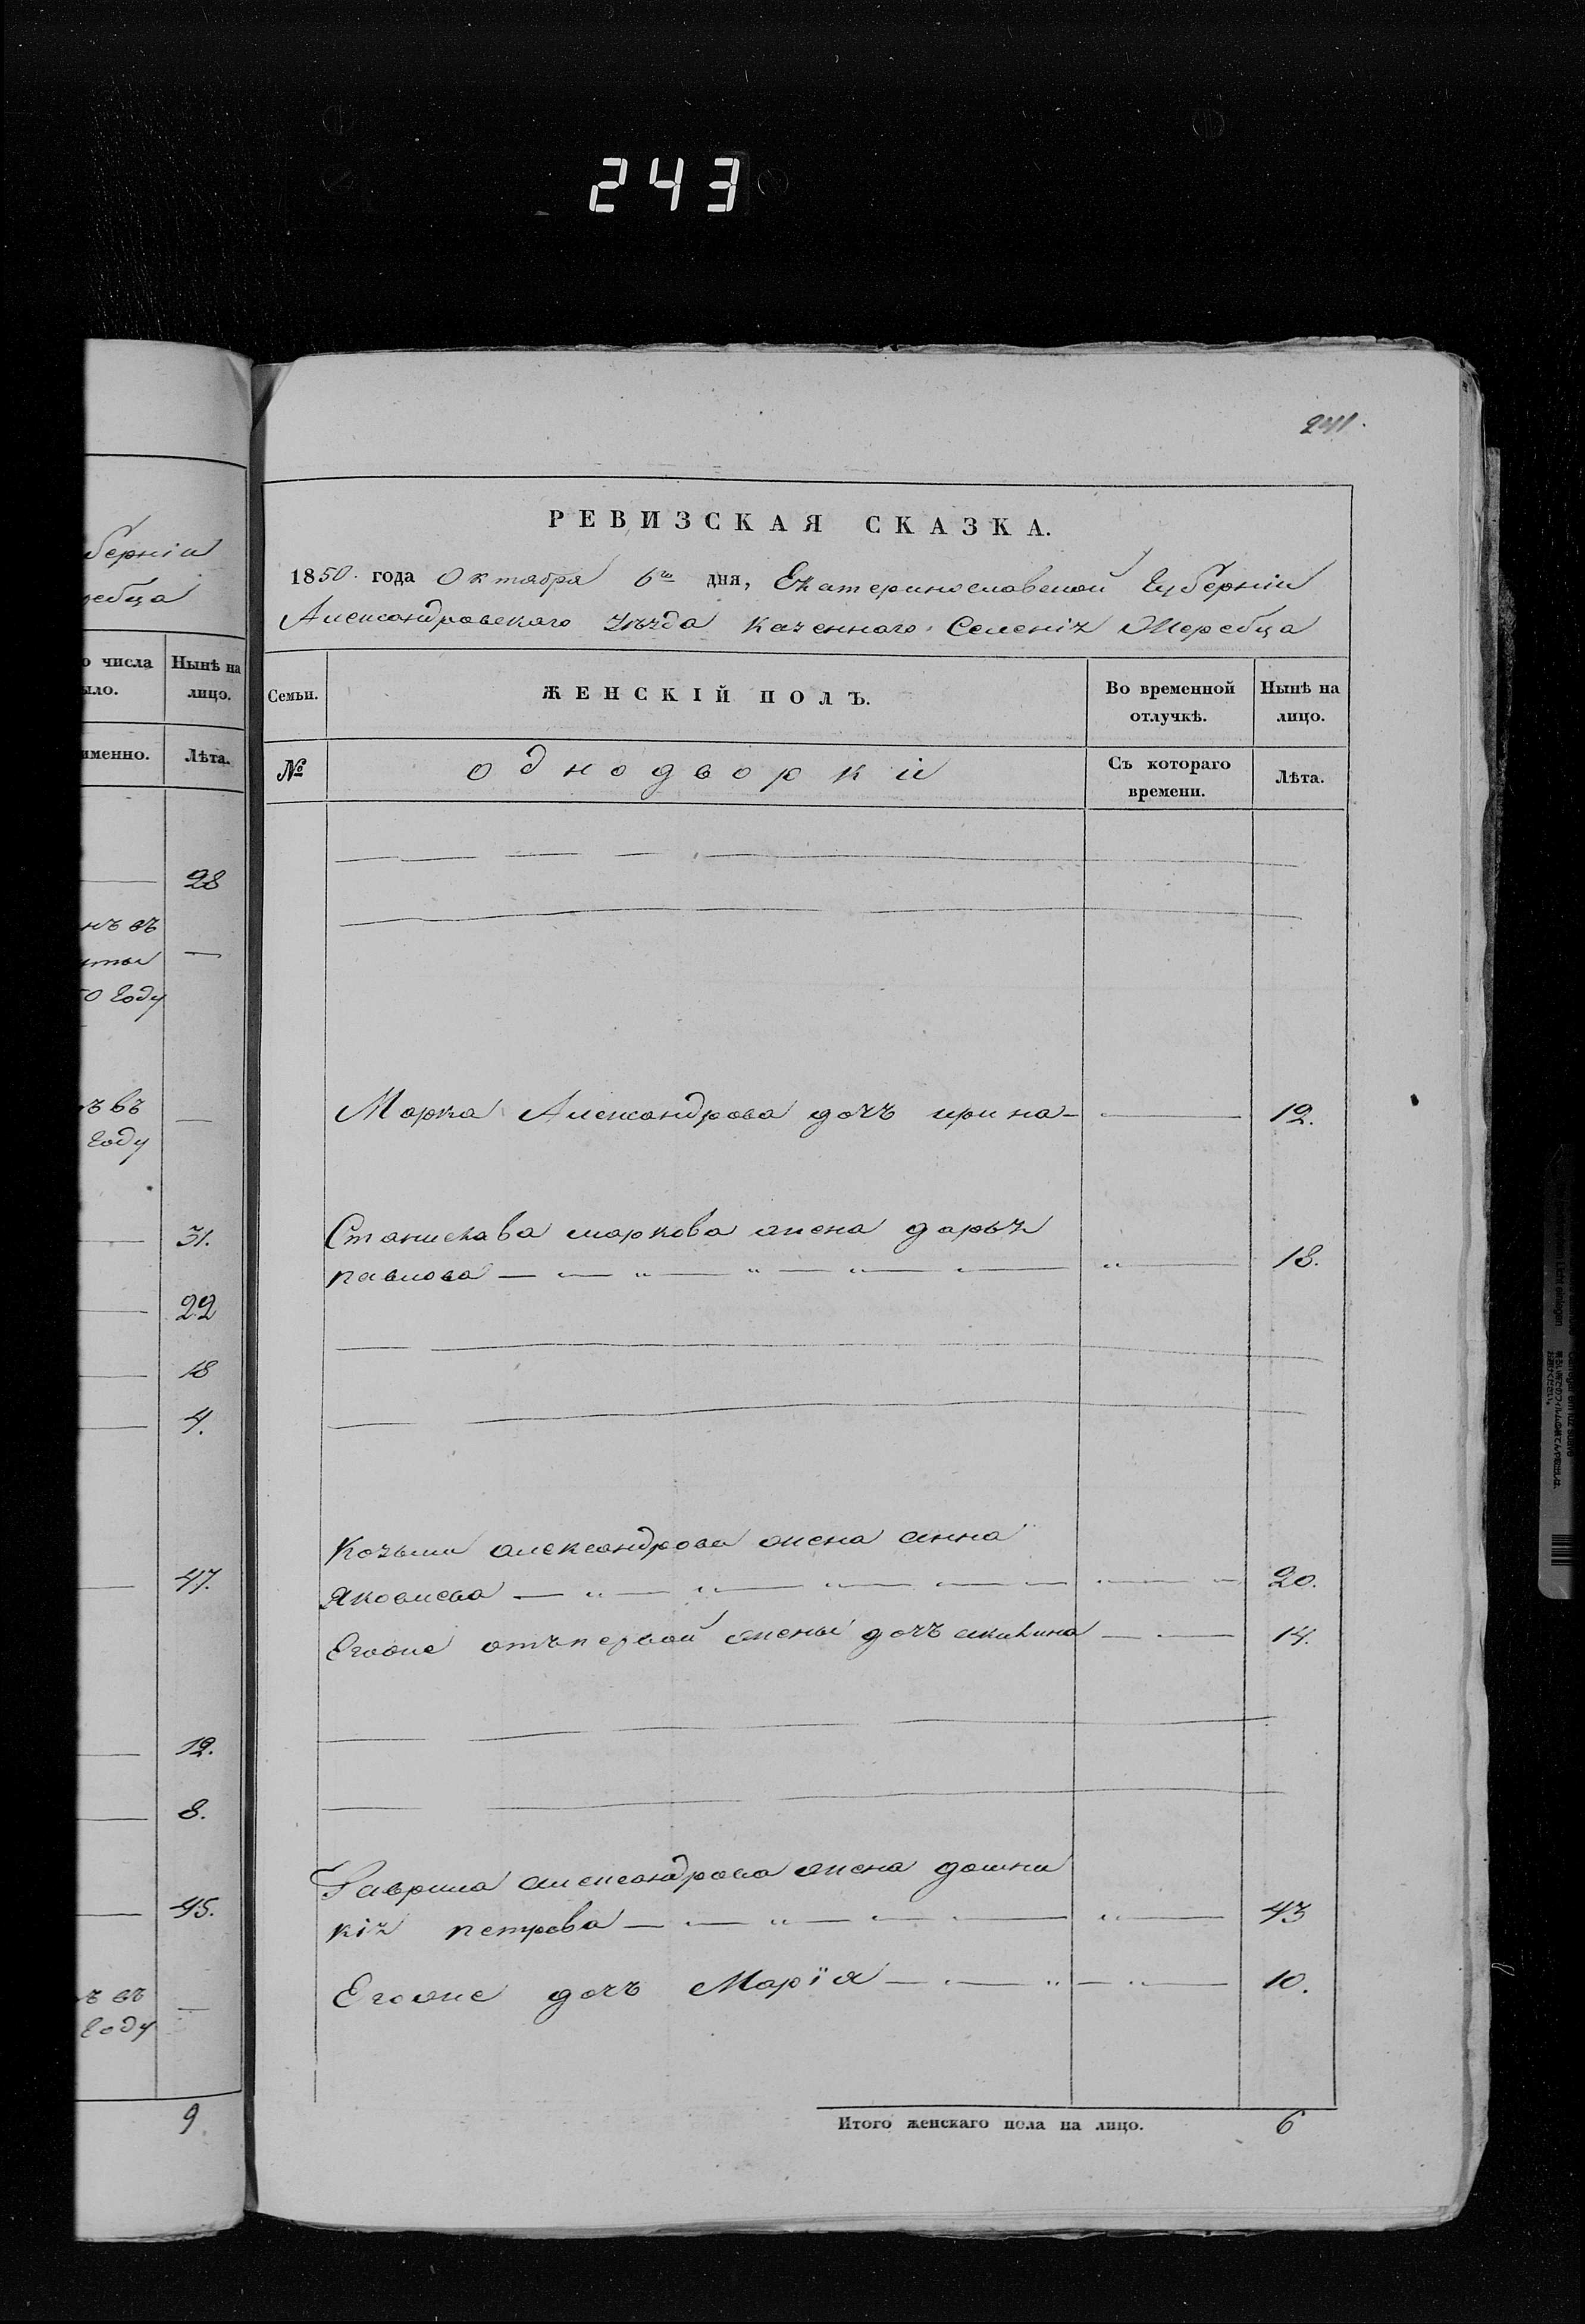 243
241.
РЕВИЗСКАЯ СКАЗКА.
1850. года Октября 6го дня, Екатеринославской Губерніи
Александровскаго уѣзда казеннаго Селенія Жеребца
Семьи.
ЖЕНСКІЙ ПОЛЪ.
Во временной отлучкѣ.
Нынѣ на лицо.
№
однодворки
Съ котораго времени.
Лѣта.
Марка Александрова дочъ ирина 12.
Станислава маркова жена дарья
павлова 18.
Козьми александрова жена анна
яковлева 20.
Егоже отъпервой жены дочъ акилина 14.
Гаврила александрова жена домни
кія петрова 43
Егоже дочъ Марія 10.
Итого женскаго пола на лицо. 6
берніи
ребца
о числа
ыло.
Нынѣ на
лицо.
именно.
Лѣта.
28
нъ въ
0 году
ъ въ
году
31.
22
18
4.
47.
12.
8.
45.
ъ въ
году
9